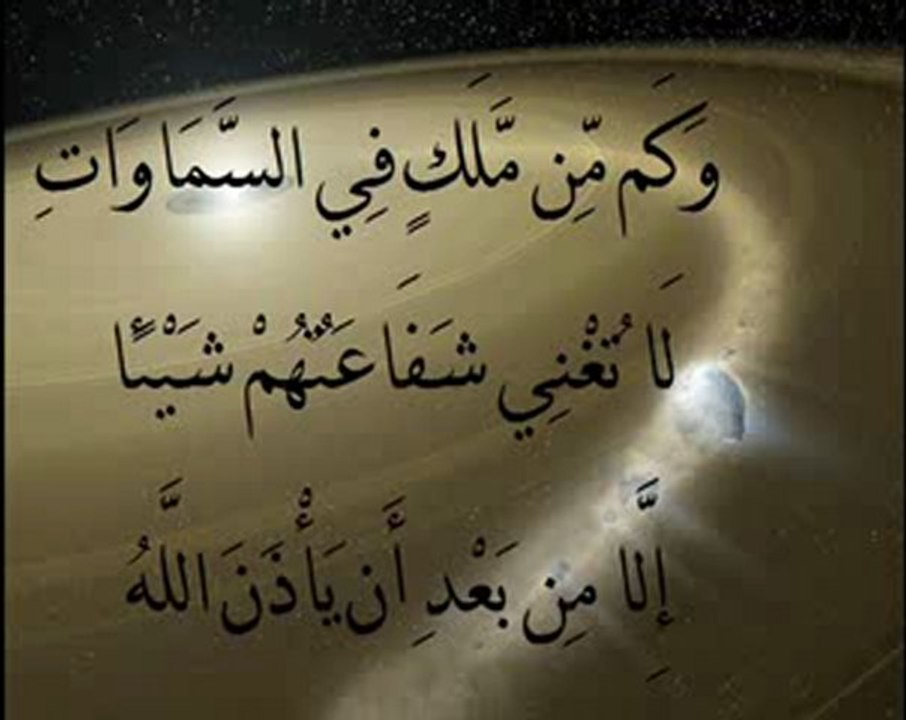 وَكَم مِّن مَّلَكٍ فِي السَّمَاوَاتِ
لَا تُغْنِي شَفَاعَتُهُمْ شَيْئًا
إِلَّا مِن بَعْدِ أَن يَأْذَنَ اللَّهُ